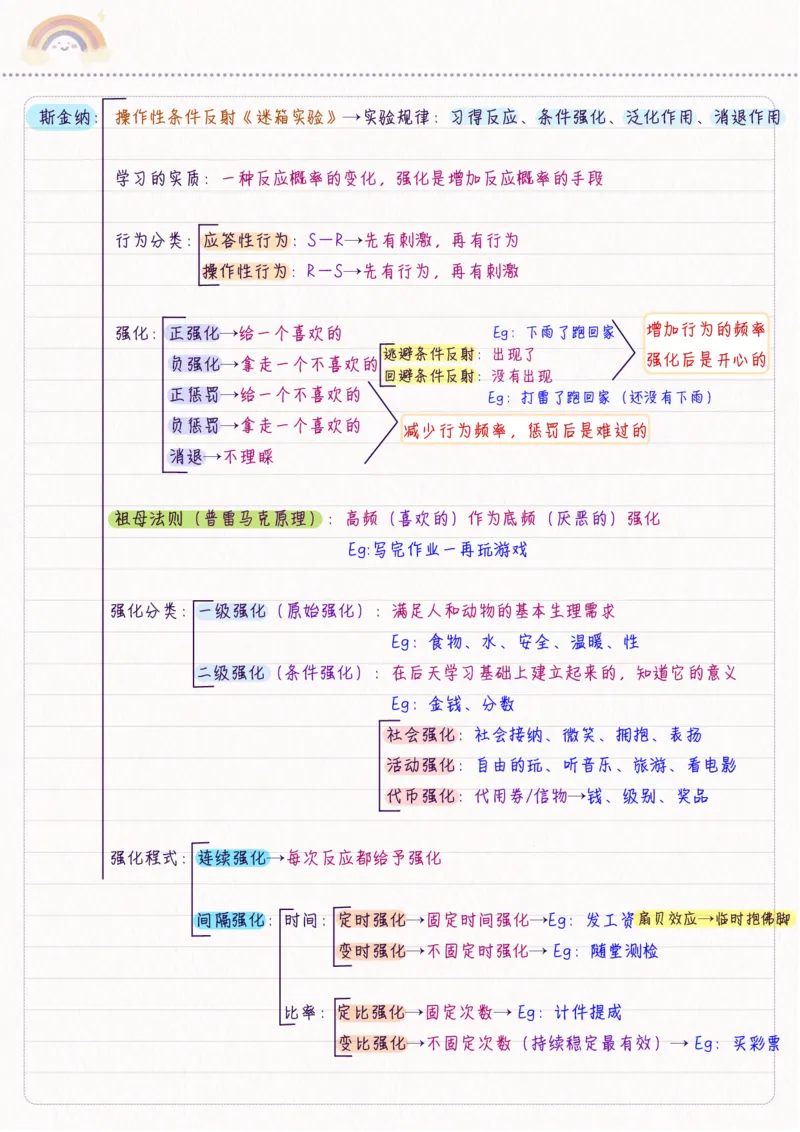 斯金纳：操作性条件反射《迷箱实验》→实验规律：习得反应、条件强化、泛化作用、消退作用
学习的实质：一种反应概率的变化，强化是增加反应概率的手段
行为分类：应答性行为：S－R→先有刺激，再有行为
操作性行为：R－S→先有行为，再有刺激
强化：正强化→给一个喜欢的
Eg：下雨了跑回家
负强化→拿走一个不喜欢的
逃避条件反射：出现了
回避条件反射：没有出现
Eg：打雷了跑回家（还没有下雨）
增加行为的频率
强化后是开心的
正惩罚→给一个不喜欢的
负惩罚→拿走一个喜欢的
消退→不理睬
减少行为频率，惩罚后是难过的
祖母法则（普雷马克原理）：高频（喜欢的）作为底频（厌恶的）强化
Eg:写完作业－再玩游戏
强化分类：一级强化（原始强化）：满足人和动物的基本生理需求
Eg：食物、水、安全、温暖、性
二级强化（条件强化）：在后天学习基础上建立起来的，知道它的意义
Eg：金钱、分数
社会强化：社会接纳、微笑、拥抱、表扬
活动强化：自由的玩、听音乐、旅游、看电影
代币强化：代用券/信物→钱、级别、奖品
强化程式：连续强化→每次反应都给予强化
间隔强化：时间：定时强化→固定时间强化→Eg：发工资 扇贝效应→临时抱佛脚
变时强化→不固定时强化→Eg：随堂测检
比率：定比强化→固定次数→Eg：计件提成
变比强化→不固定次数（持续稳定最有效）→Eg：买彩票